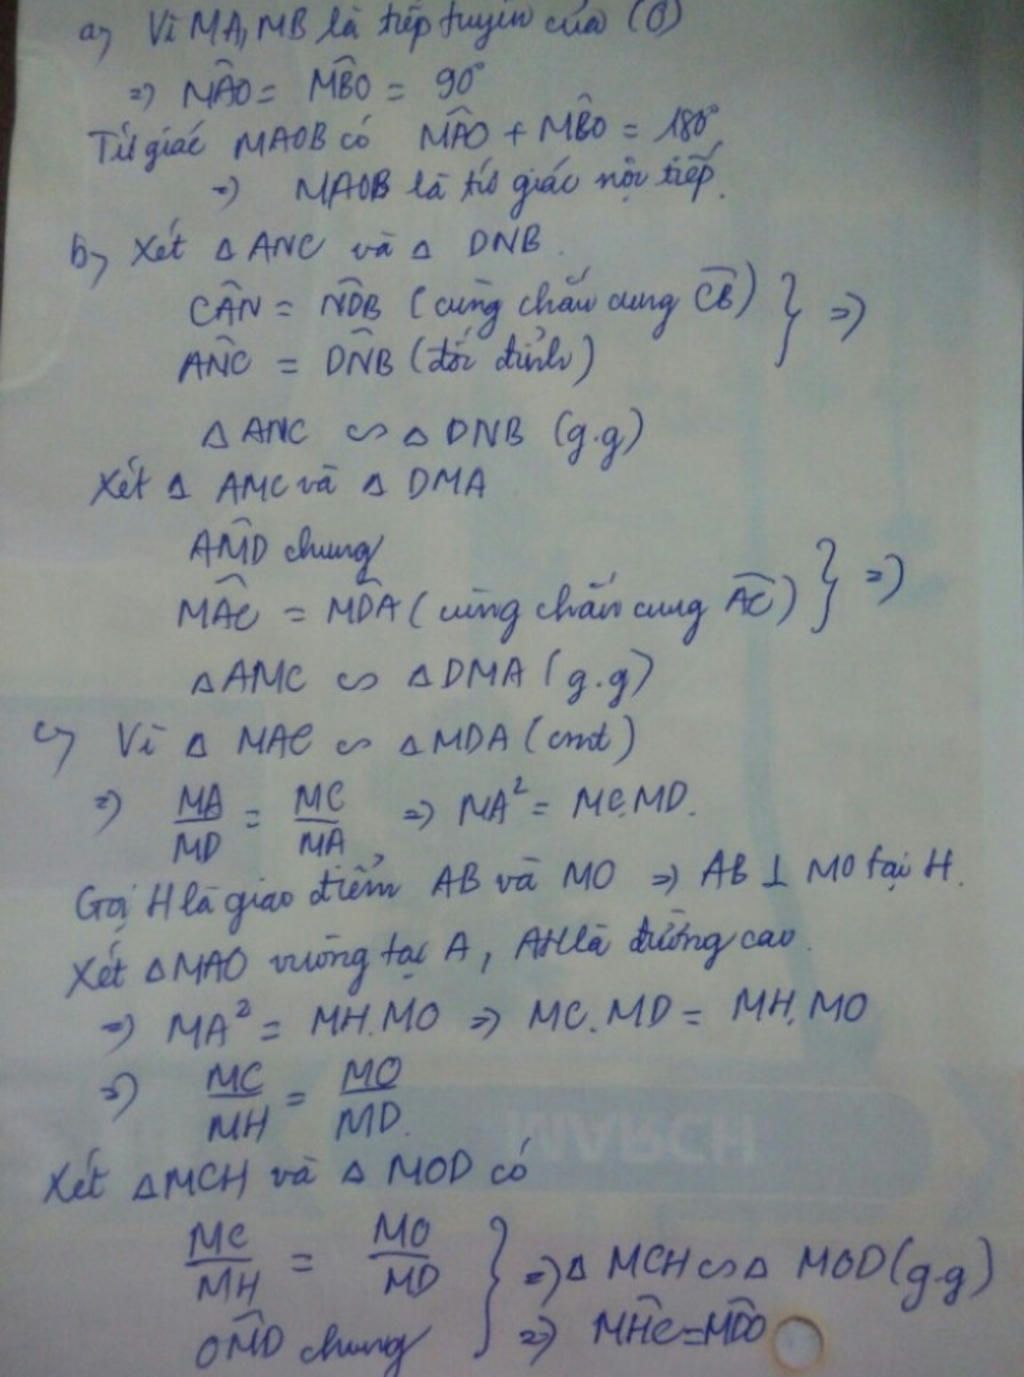 a, Vì MA, MB là tiếp tuyến của (O)
=> M̂AO = M̂BO = 90°
Tứ giác MAOB có M̂AO + M̂BO = 180°
=> MAOB là tứ giác nội tiếp.
b, Xét Δ ANC và Δ DNB.
CÂN = N̂DB (cùng chắn cung C͡B) } =>
ÂNC = D̂NB (đối đỉnh)
Δ ANC ∽ Δ DNB (g.g)
Xét Δ AMC và Δ DMA
ÂMD chung
M̂AC = M̂DA (cùng chắn cung A͡C) } =>
Δ AMC ∽ Δ DMA (g.g)
c, Vì Δ MAC ∽ Δ MDA (cmt)
=> MA/MD = MC/MA => MA² = MC.MD.
Gọi H là giao điểm AB và MO => AB ⊥ MO tại H.
Xét Δ MAO vuông tại A, AH là đường cao.
=> MA² = MH.MO => MC.MD = MH.MO
=> MC/MH = MO/MD.
Xét Δ MCH và Δ MOD có
MC/MH = MO/MD } => Δ MCH ∽ Δ MOD (g.g)
OM̂D chung => MĤC = MD̂O
MARCH